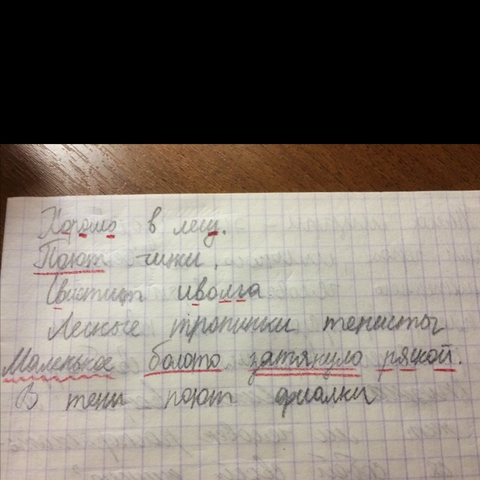 Хорошо в лесу.
Поют чижи.
Свистит иволга
Лесные тропинки тенисты
Маленькое болото затянуло ряской.
В тени поют фиалки